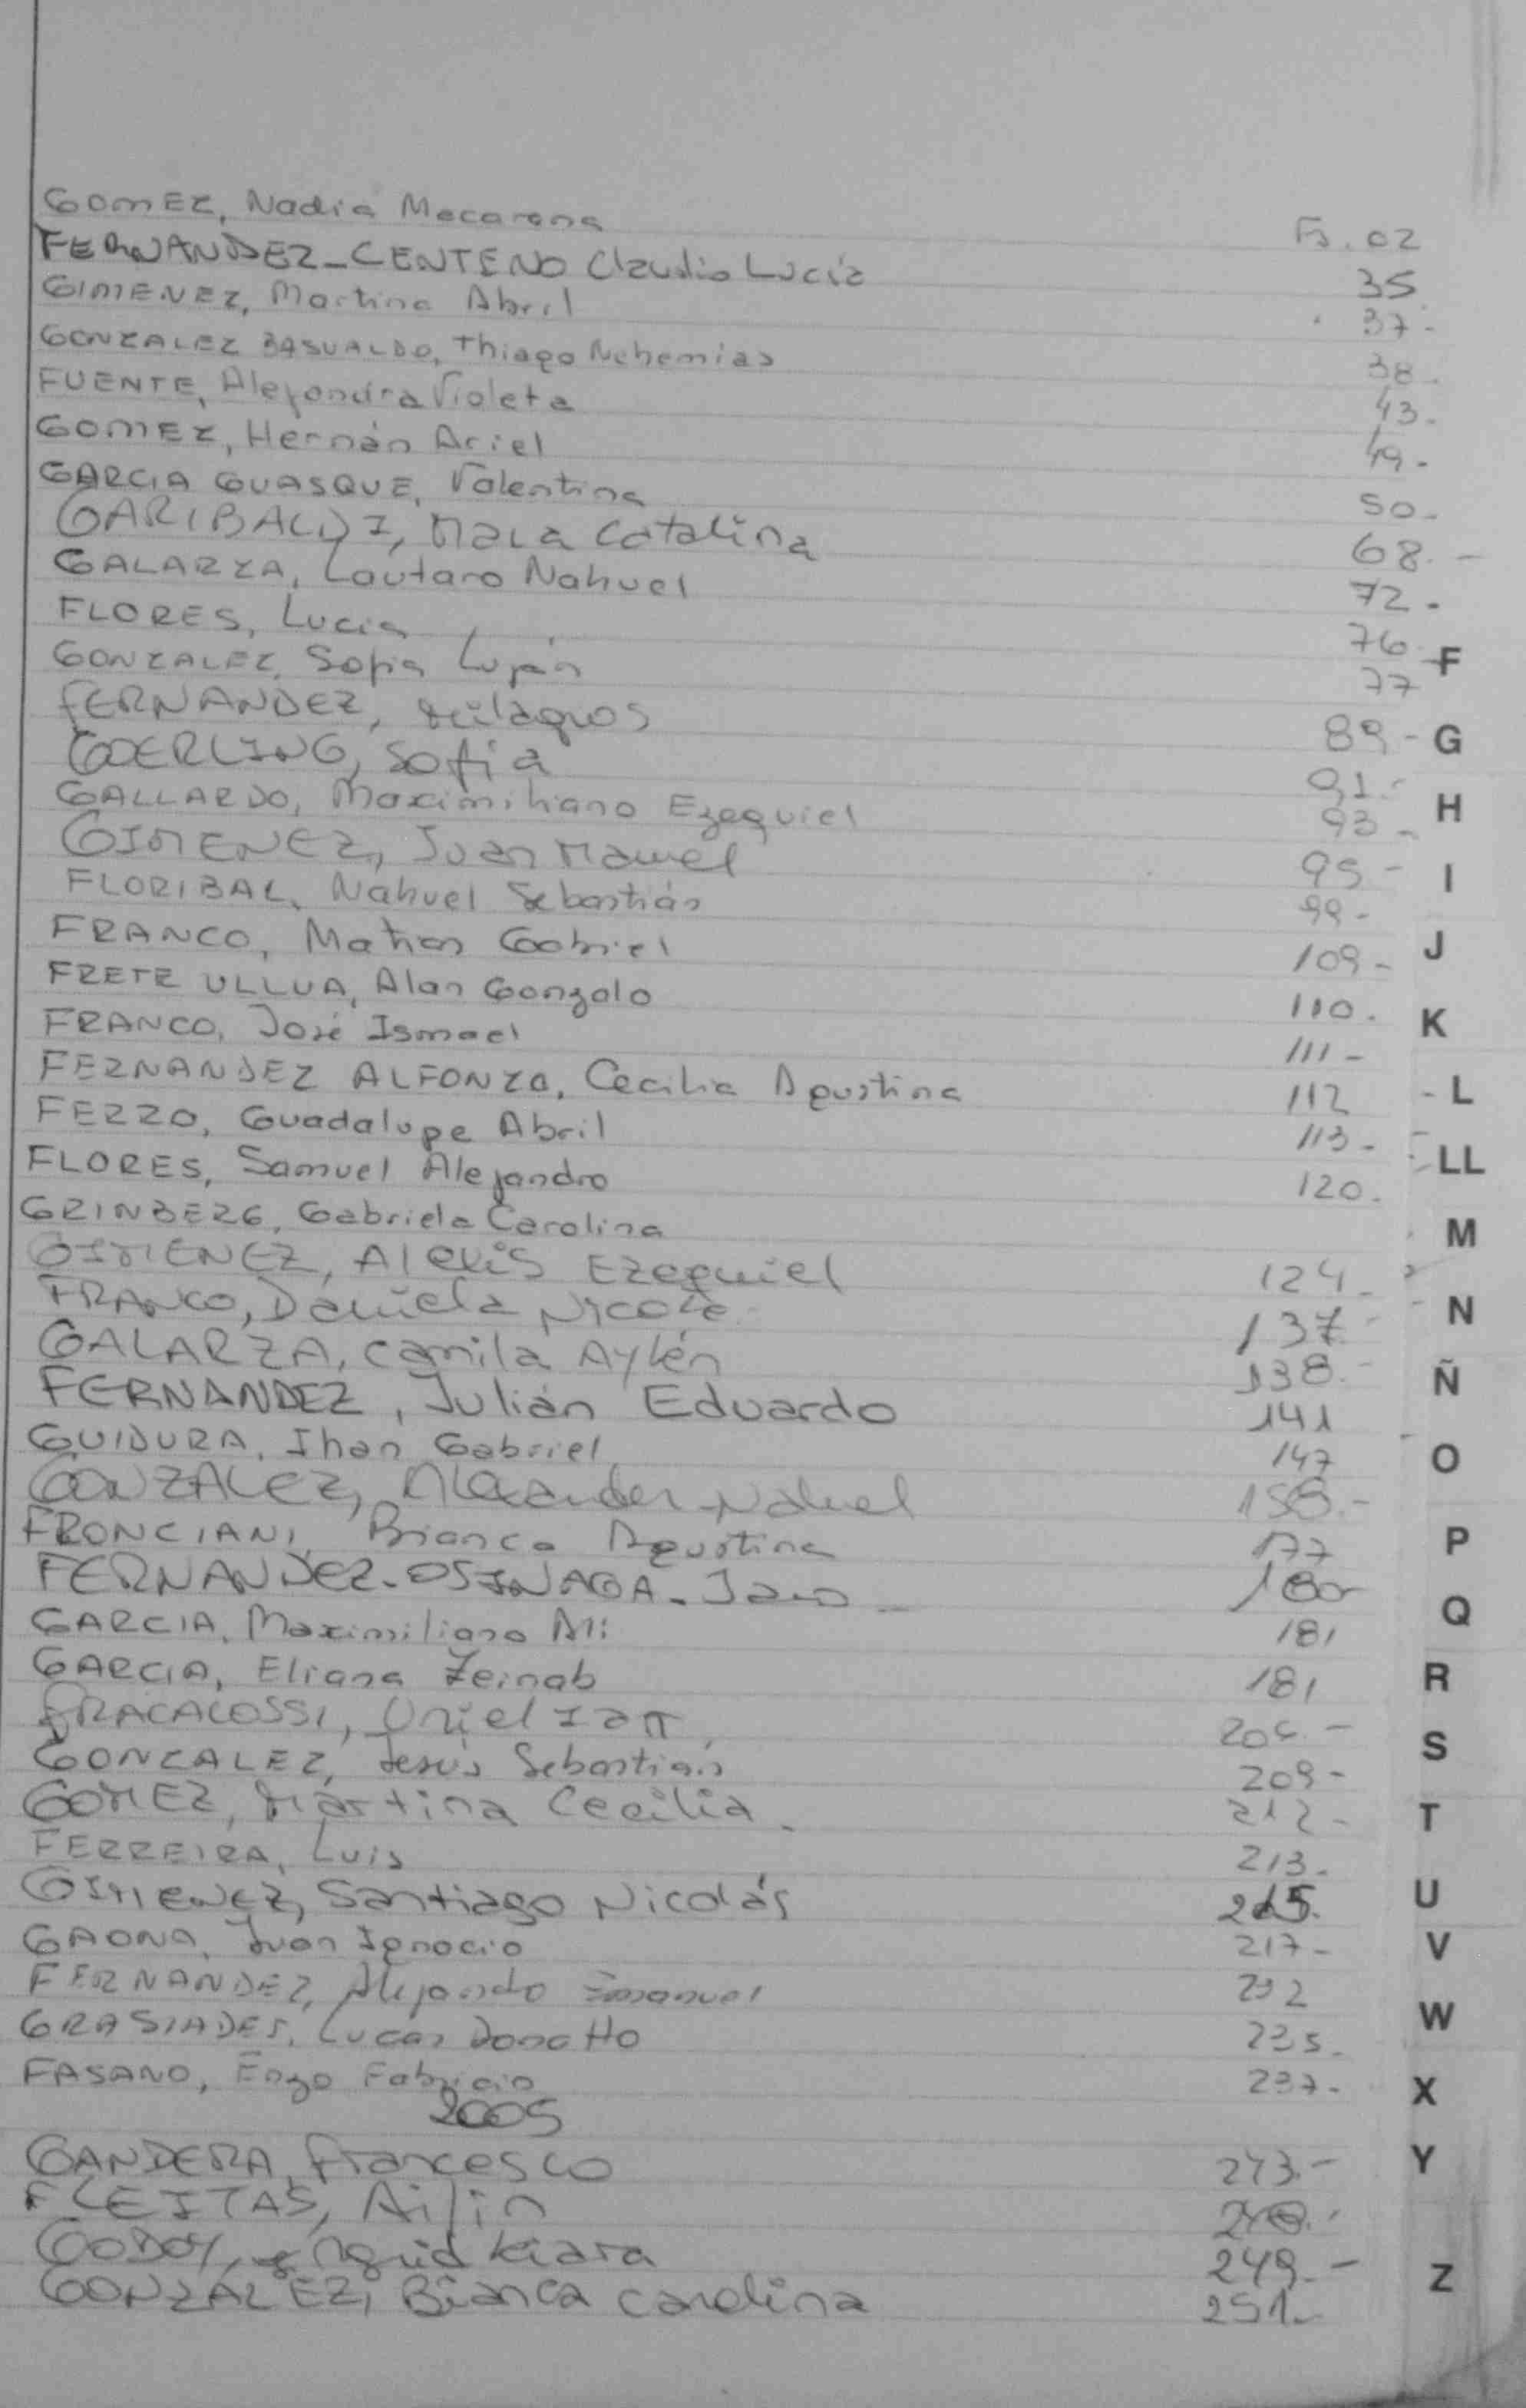 GOMEZ, Nadia Macarena Fs. 02
FERNANDEZ-CENTENO Claudia Lucía 35
GIMENEZ, Martina Abril 37-
GONZALEZ BASUALDO, Thiago Nehemias 38-
FUENTE, Alejandra Violeta 43-
GOMEZ, Hernán Ariel 49-
GARCIA GUASQUE, Valentina 50-
GARIBALDI, Mara Catalina 68-
GALARZA, Lautaro Nahuel 72-
FLORES, Lucia 76
GONZALEZ, Sofia Luján 77
F
FERNANDEZ, Milagros 89-
G
GOERLING, Sofia 91-
GALLARDO, Maximiliano Ezequiel 93-
H
GIMENEZ, Juan Manuel 95-
I
FLORIBAL, Nahuel Sebastián 99-
FRANCO, Matias Gabriel 109-
J
FRETE ULLUA, Alan Gonzalo 110-
K
FRANCO, José Ismael 111-
FERNANDEZ ALFONZO, Cecilia Agustina 112
L
FEZZO, Guadalupe Abril 113-
LL
FLORES, Samuel Alejandro 120-
GRINBERG, Gabriela Carolina
M
GIMENEZ, Alexis Ezequiel 124-
FRANCO, Daniela Nicole 137-
N
GALARZA, Camila Aylén 138-
Ñ
FERNANDEZ, Julián Eduardo 141
GUIDURA, Ihan Gabriel 147
O
GONZALEZ, Alexander Nahuel 158-
FRONCIANI, Bianca Agustina 177
P
FERNANDEZ-OSINAGA- 180-
GARCIA, Maximiliano Ali 181
Q
GARCIA, Eliana Zeinab 181
R
FRACALOSSI, Uriel
S
GONZALEZ, Jesús Sebastián 209-
GOMEZ, Martina Cecilia 212-
T
FERREIRA, Luis 213-
GIMENEZ, Santiago Nicolás 215-
U
GAONA, Juan Ignacio 217-
V
FERNANDEZ, Alejandro Emanuel 232
GRASIADES, Lucas Donatto 235-
W
FASANO, Enzo Fabricio 237-
X
2005
GANDERA, Francesco 243-
Y
FLEITAS, Ailin
GODOY, Ingrid Kiara 249-
Z
GONZALEZ, Bianca Carolina 251-